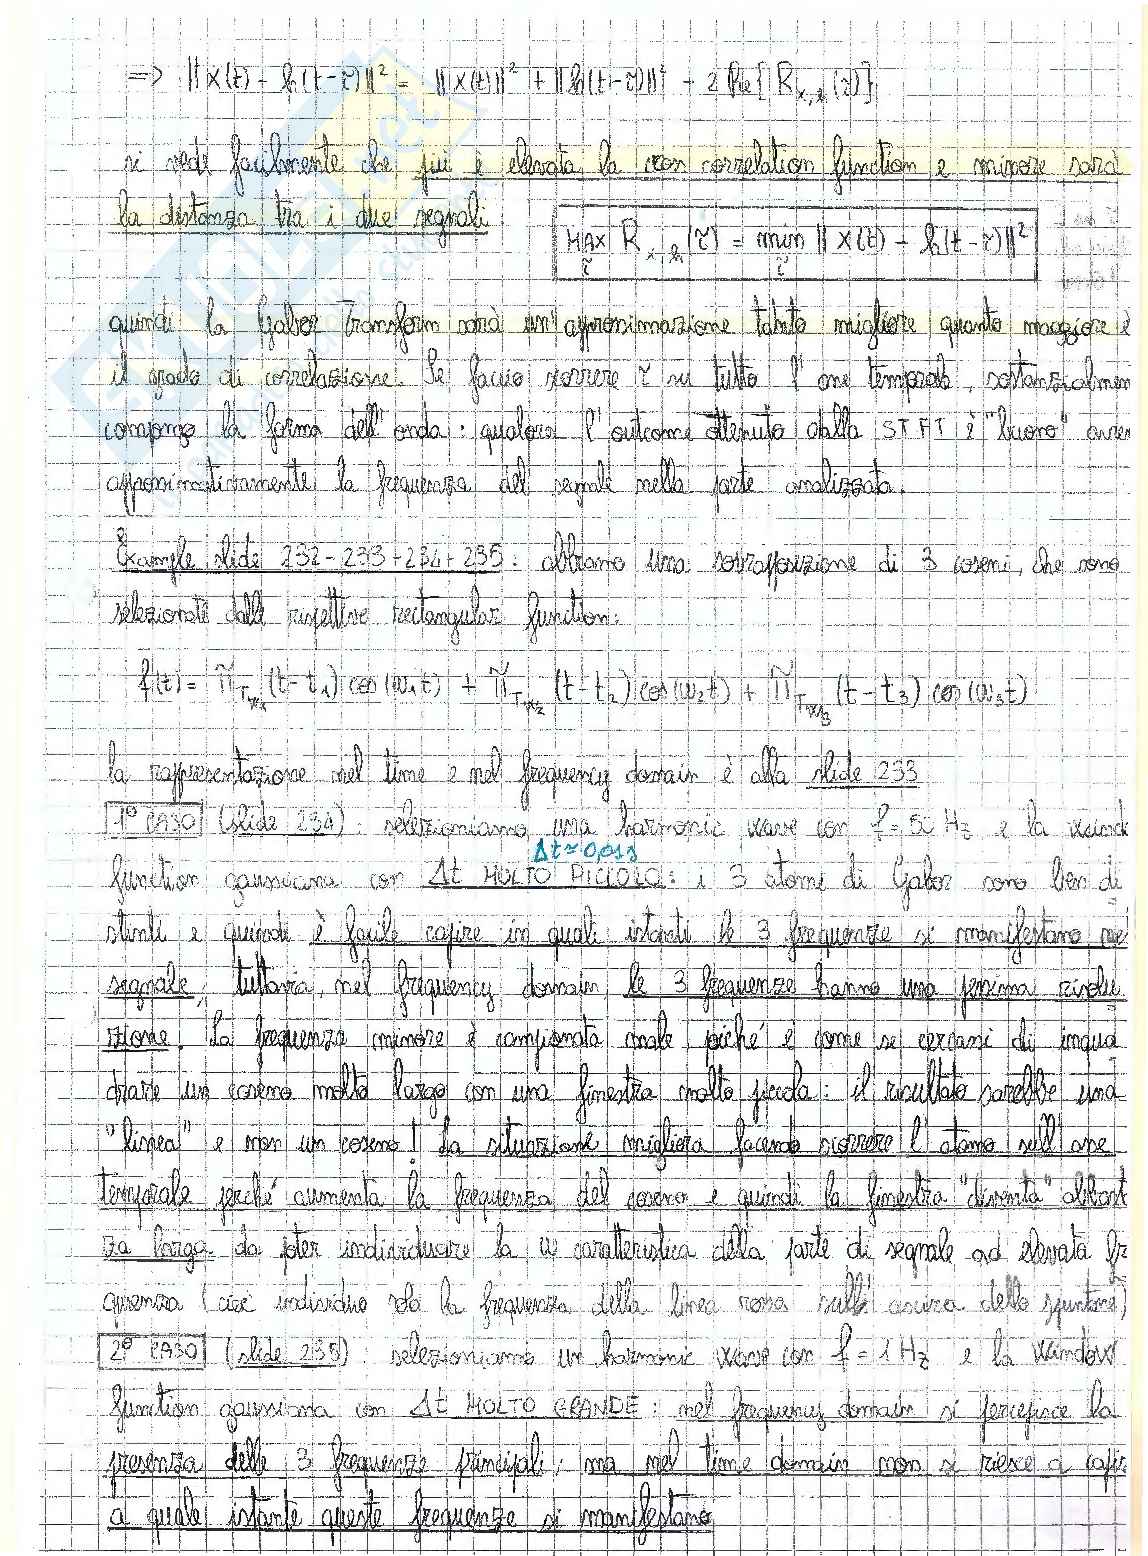 => ||x(t) - h(t-τ)||² = ||x(t)||² + ||h(t-τ)||² - 2 Re{R_{x,h}(τ)}
si vede facilmente che più è elevata la cross correlation function e minore sarà
la distanza tra i due segnali
MAX_τ R_{x,h}(τ) = min_τ ||x(t) - h(t-τ)||²
quindi la Gabor Transform sarà un'approssimazione tanto migliore quanto maggiore è
il grado di correlazione. Se faccio scorrere τ su tutto l'asse temporale, sostanzialmen
compongo la forma dell'onda: qualora l'outcome ottenuto dalla STFT è "buono" avrem
approssimativamente la frequenza del segnale nella parte analizzata.
Example slide 232-233+234+235: abbiamo una sovrapposizione di 3 coseni, che sono
selezionati dalle rispettive rectangular function:
f(t) = Π (t-t₁) cos(ω₁t) + Π (t-t₂) cos(ω₂t) + Π (t-t₃) cos(ω₃t)
la rappresentazione nel time e nel frequency domain è alla slide 233
1° CASO (slide 234): selezioniamo una harmonic wave con f=50 Hz e la window
Δt≈0,01s
function gaussiana con Δt MOLTO PICCOLO: i 3 atomi di Gabor sono ben di
stinti e quindi è facile capire in quali istanti le 3 frequenze si manifestano nel
segnale, tuttavia, nel frequency domain, le 3 frequenze hanno una pessima risolu
zione. La frequenza minore è campionata male poiché è come se cercassi di inqua
drare un coseno molto largo con una finestra molto piccola: il risultato sarebbe una
"linea" e non un coseno! La situazione migliora facendo scorrere l'atomo sull'asse
temporale perché aumenta la frequenza del coseno e quindi la finestra "diventa" abbast
za larga da poter individuare la ω caratteristica della parte di segnale ad elevata fr
quenza (cioè individuo solo la frequenza della linea rossa sull' dello spuntone)
2° CASO (slide 235): selezioniamo un harmonic wave con f=1Hz e la window
function gaussiana con Δt MOLTO GRANDE: nel frequency domain si percepisce la
presenza delle 3 frequenze principali, ma nel time domain non si riesce a capir
a quale istante queste frequenze si manifestano